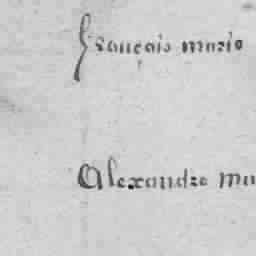 François marie
Alexandre ma